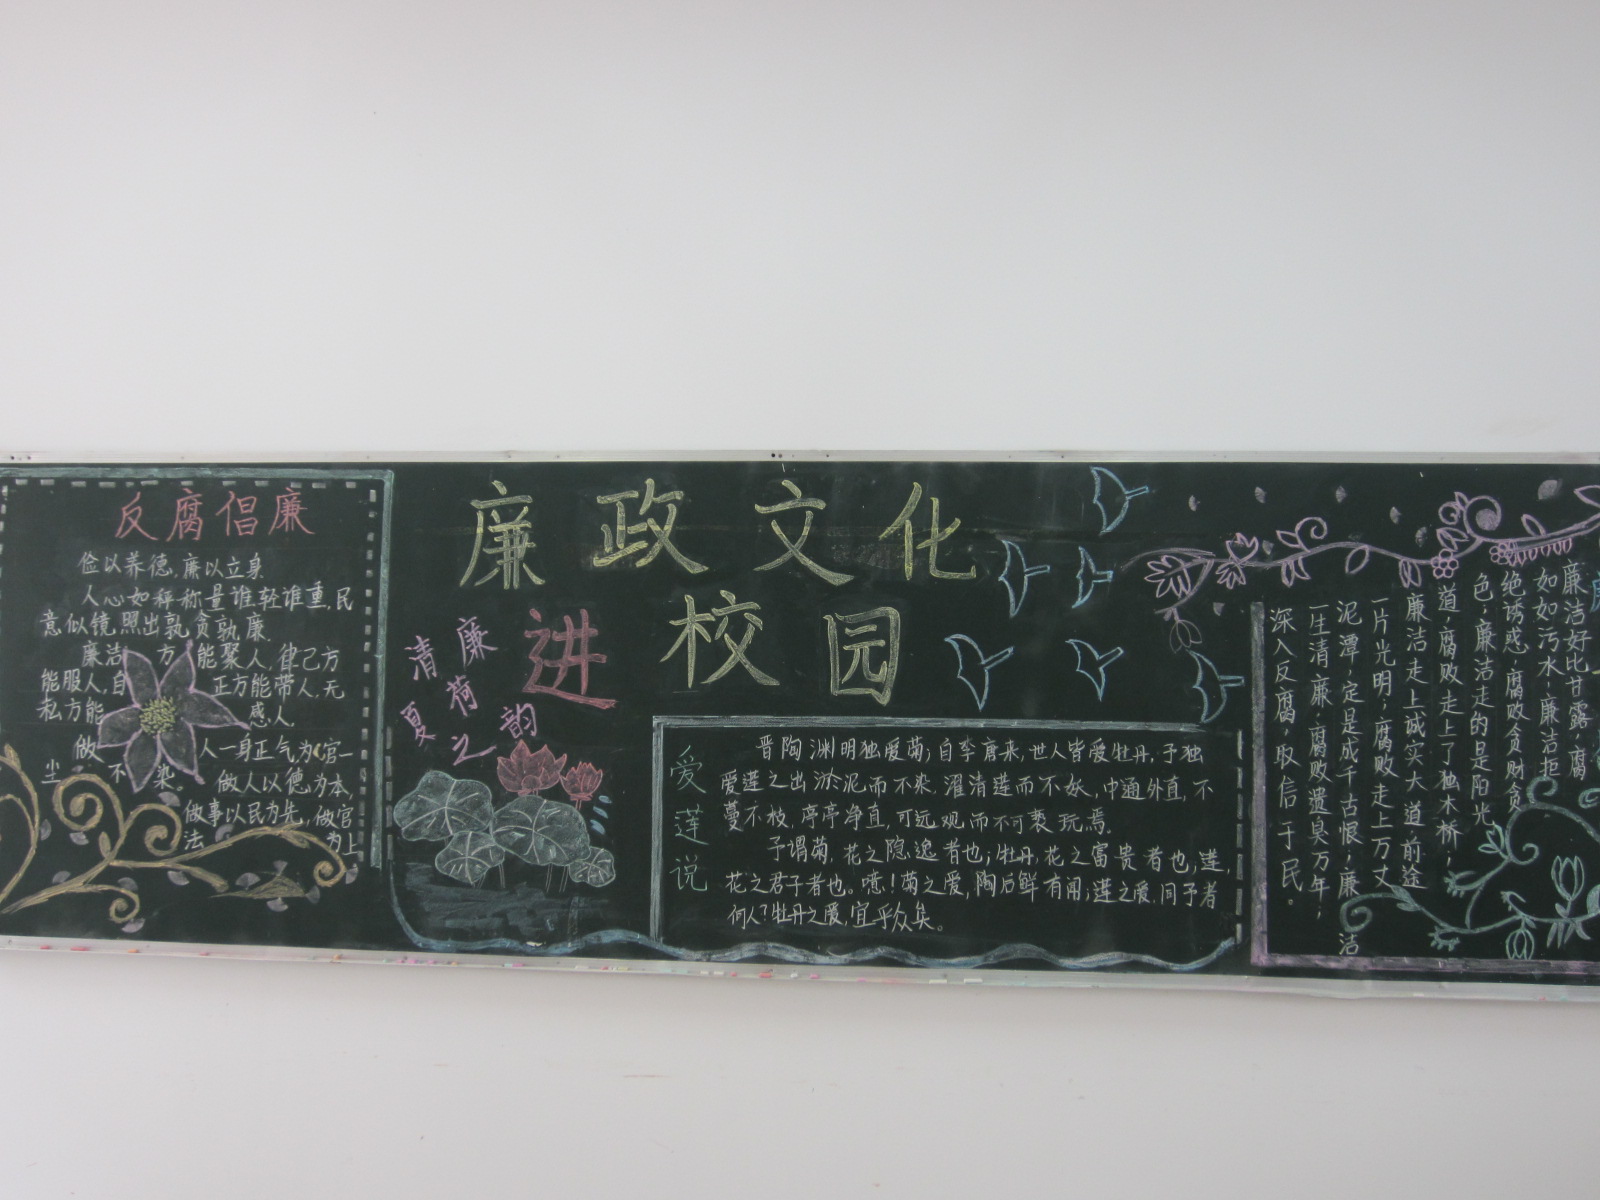 反腐倡廉
俭以养德,廉以立身
人心如秤称量谁轻谁重,民
意似镜照出孰贪孰廉.
廉洁方能聚人,律己方
能服人,自正方能带人,无
私方能感人.
做人一身正气为官一
尘不染。做人以德为本,
做事以民为先,做官
法为上
廉政文化
进校园
清廉
夏荷
之韵
爱莲说
晋陶渊明独爱菊;自李唐来,世人皆爱牡丹,予独
爱莲之出淤泥而不染,濯清莲而不妖,中通外直,不
蔓不枝,亭亭净直,可远观而不可亵玩焉.
予谓菊,花之隐逸者也;牡丹,花之富贵者也;莲,
花之君子者也。噫!菊之爱,陶后鲜有闻;莲之爱,同予者
何人?牡丹之爱,宜乎众矣。
廉洁好比甘露,腐
如如污水,廉洁拒
绝诱惑,腐败贪财贪
色;廉洁走的是阳光
道,腐败走上了独木桥;
廉洁走上诚实大道,前途
一片光明;腐败走上万丈
泥潭,定是成千古恨;廉洁
一生清廉,腐败遗臭万年;
深入反腐,取信于民。